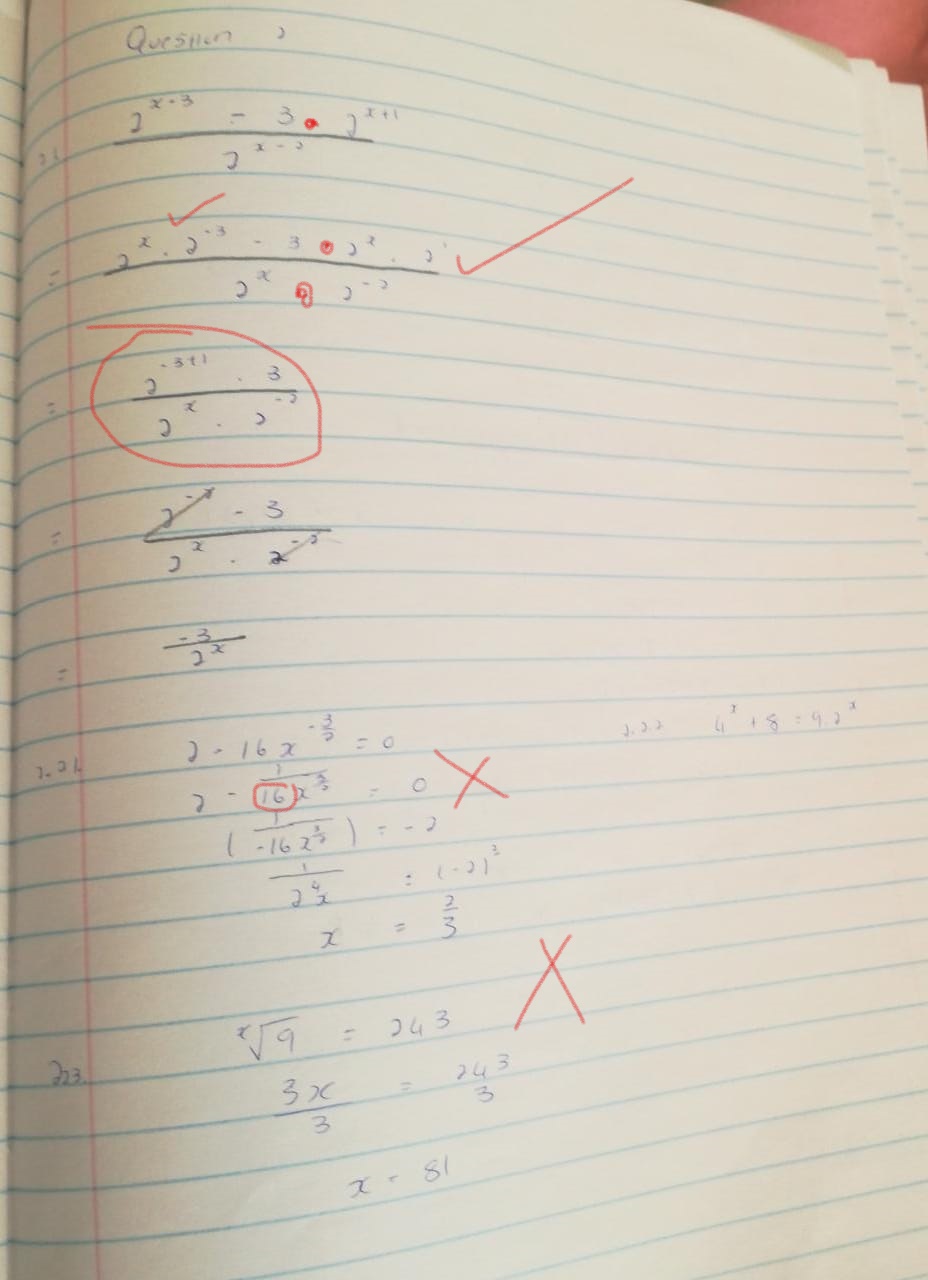 Question 2
2.1 (2^{x-3} - 3 · 2^{x+1}) / 2^{x-2}
= (2^x · 2^{-3} - 3 · 2^x · 2^1) / (2^x · 2^{-2})
= (2^{-3+1} · 3) / (2^x · 2^{-2})
= (2^{-2} - 3) / (2^x · 2^{-2})
= -3 / 2^x
2.21. 2 - 16x^{-3/2} = 0
2 - 1 / 16x^{3/2} = 0
(1 / -16x^{3/2}) = -2
1 / 2^4x = (-2)^3
x = 2/3
2.2.2 4^x + 8 = 9.2^x
223. ^x√9 = 243
3x / 3 = 243 / 3
x = 81